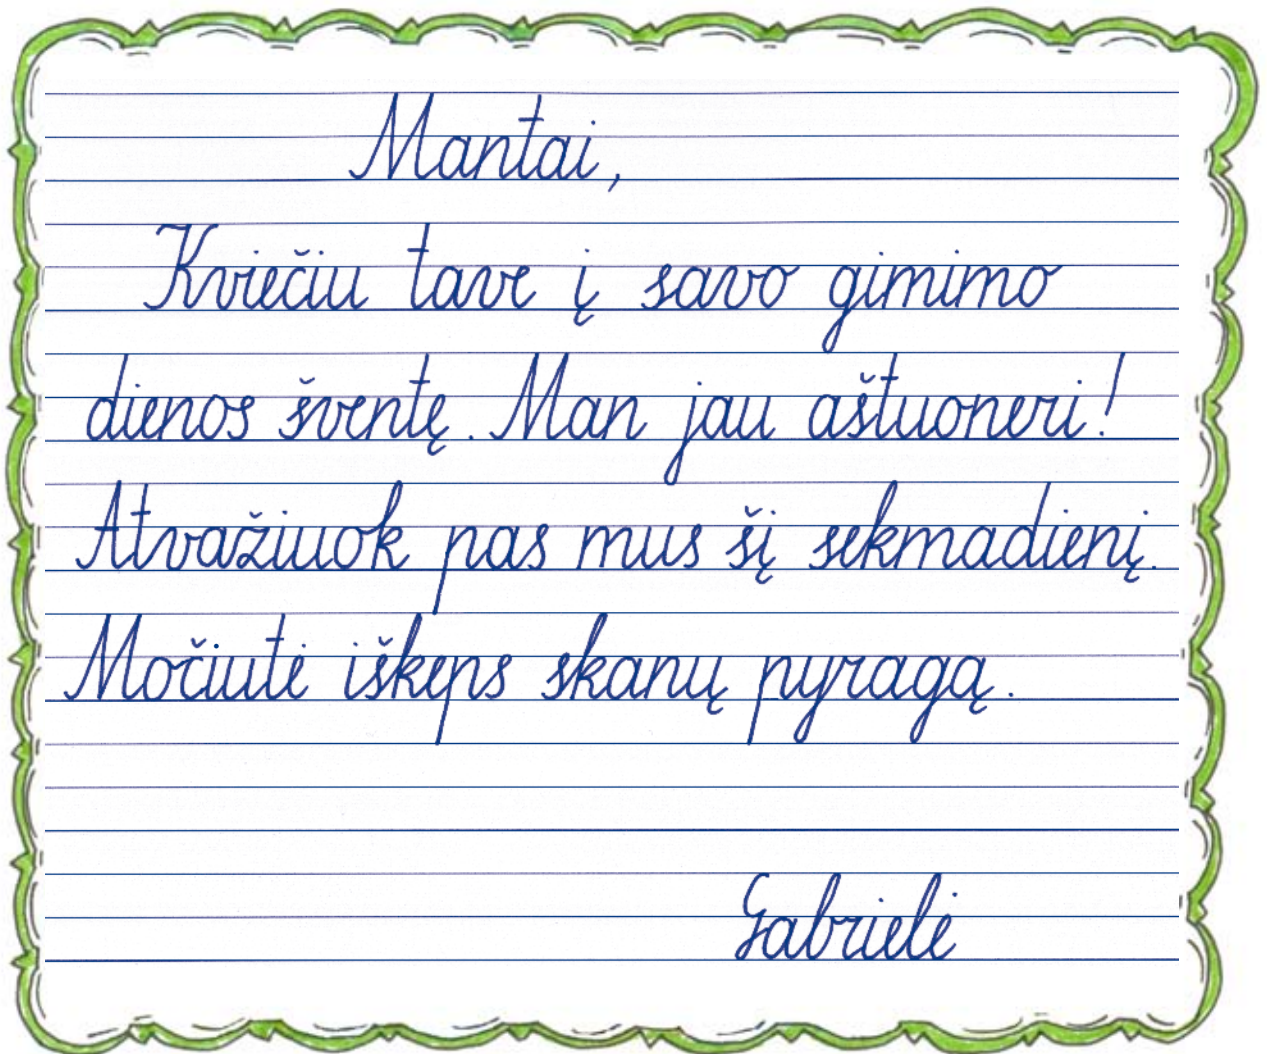 Mantai,
Kviečiu tave į savo gimimo
dienos šventę. Man jau aštuoneri!
Atvažiuok pas mus šį sekmadienį.
Močiutė iškeps skanų pyragą.
Gabrielė